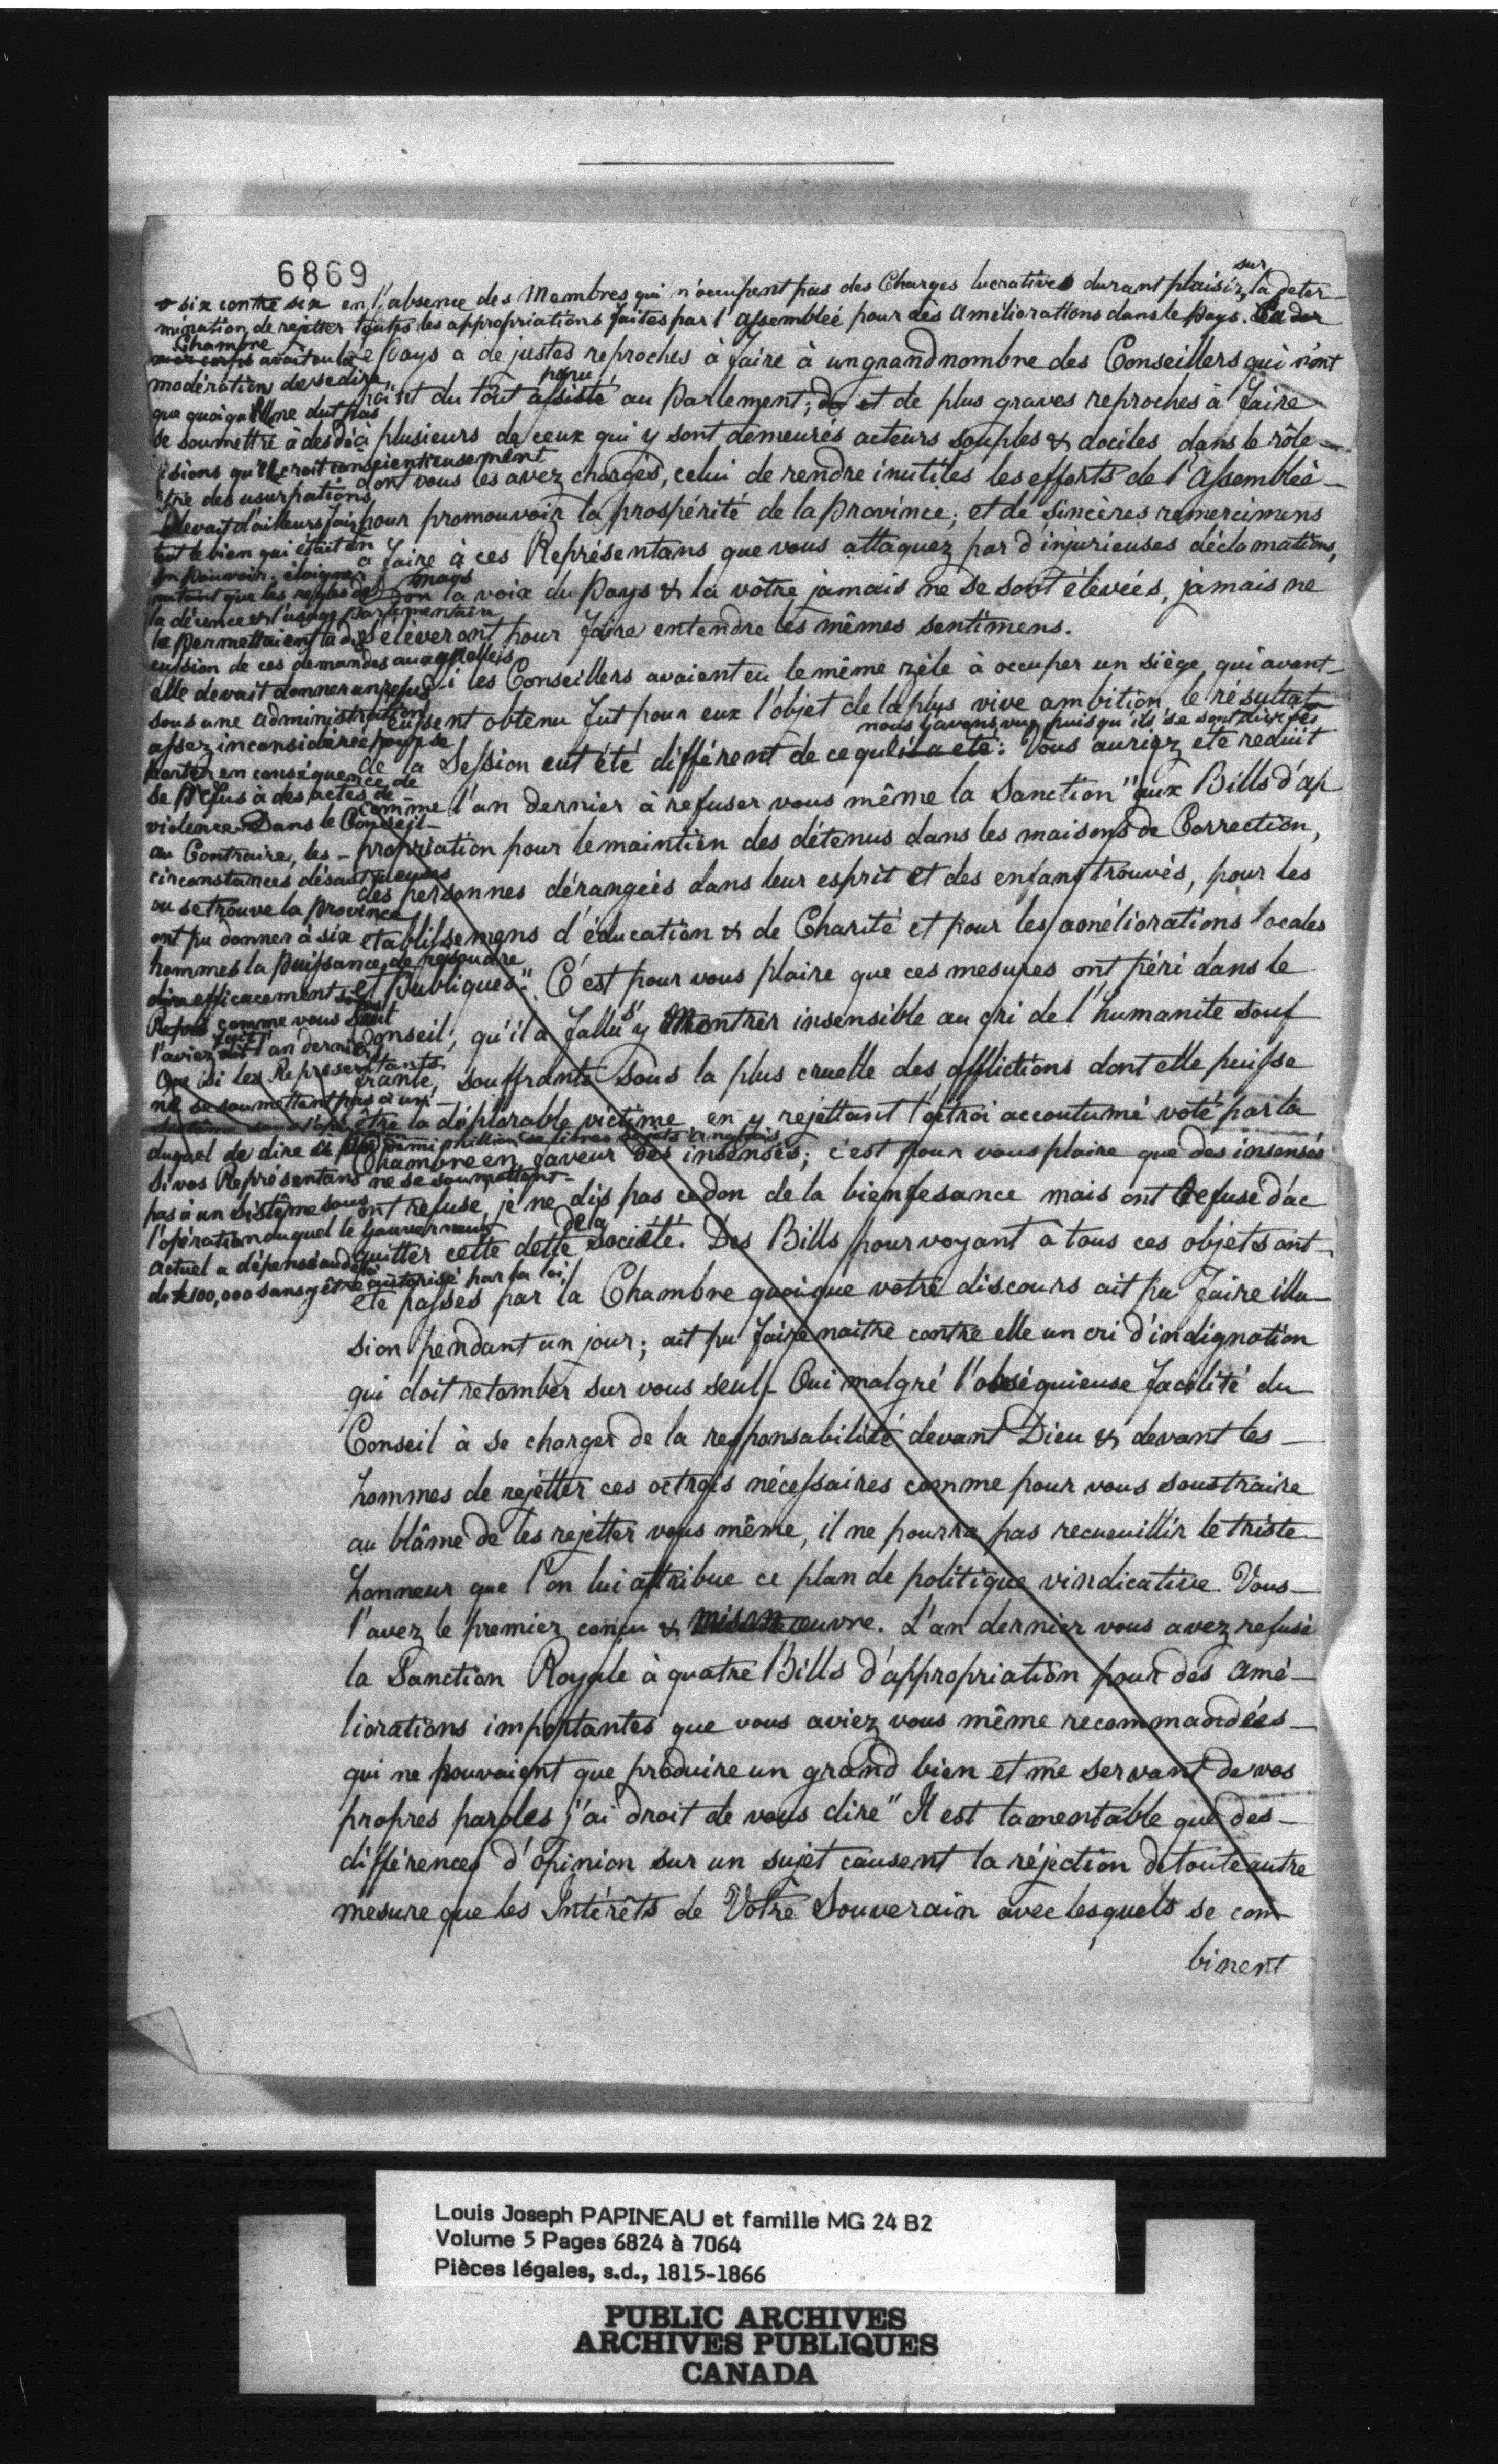 6869
six contre six en l'absence des Membres qui n'occupent pas des Charges lucratives durant plaisir, sur la deter
mination de rejetter toutes les appropriations faites par l'Assemblée pour des Améliorations dans le Pays. La der
Chambre
nier corps avait eu la
modération de se dire,
que quoiqu'Elle ne dut pas
se soumettre à des déc
isions qu'Elle croit conscientieusement
être des usurpations,
Elle devait d'ailleurs faire
tout le bien qui était en
son pouvoir, éloigner
autant que les regles de
la décence & l'usage parlementaire
le permettaient la dis
cussion de ces demandes auxquelles
elle devait donner un refus
sous une administration
assez inconsidérée pour se
porter en conséquence de
ce Refus à des actes de
violence. Dans le Conseil
au Contraire, les
circonstances désastreuses
ou se trouve la province
ont pu donner à six
hommes la puissance de resoudre
efficacement
Refus comme vous seul
l'aviez fait l'an dernier
Que si les Representants
ne se soumettent pas à un
sistême sous l'opé
duquel de dire demi million de libres sujets anglais
Si vos Représentans ne se soumettent
pas à un Sistême sous
l'opération duquel le Gouvernement
actuel a dépensé audelà
de £100,000 sans y être autorisé par la loi,
e Pays a de justes reproches à faire à un grand nombre des Conseillers qui n'ont
paru
point du tout assisté au Parlement; et de plus graves reproches à faire
à plusieurs de ceux qui y sont demeurés acteurs souples & dociles dans le rôle
dont vous les avez chargés, celui de rendre inutiles les efforts de l'Assemblée
pour promouvoir la prospérité de la province; et de sincères remercimens
à faire à ces Représentans que vous attaquez par d'injurieuses déclamations,
mays
la voix du Pays & la vôtre jamais ne se sont élevées, jamais ne
s'élèveront pour faire entendre les mêmes sentimens.
Si les Conseillers avaient eu le même zèle à occuper un siège qui avant
eussent obtenu fut pour eux l'objet de la plus vive ambition, le résultat
nous l'avons vu, puisqu'ils se sont divisés
de la Session eut été différent de ce qu'il a été: Vous auriez été reduit
comme l'an dernier à refuser vous même la Sanction "aux Bills d'ap
propriation pour le maintien des détenus dans les maisons de Correction,
des personnes dérangées dans leur esprit et des enfans trouvés, pour les
etablissemens d'éducation & de Charité et pour les améliorations locales
et Publiques". C'est pour vous plaire que ces mesures ont péri dans le
Conseil; qu'il a fallu s'y Montrer insensible au cri de l'humanité souf
frante, souffrante sous la plus cruelle des afflictions dont elle puisse
être la déplorable victime en y rejettant l'octroi accoutumé voté par la
Chambre en faveur des insensés; c'est pour vous plaire que des insensés
ont refusé, je ne dis pas ce don de la bienfesance mais ont Refusé d'ac
quitter cette dette de la société. Des Bills pourvoyant à tous ces objets ont
été passés par la Chambre quoique votre discours ait pu faire illu
sion pendant un jour; ait pu faire naitre contre elle un cri d'indignation
qui doit retomber sur vous seul. Oui malgré l'obséquieuse facilité du
Conseil à se charger de la responsabilité devant Dieu & devant les
hommes de rejetter ces octrois nécessaires comme pour vous soustraire
au blâme de les rejetter vous même, il ne pourra pas recueuillir le triste
honneur que l'on lui attribue ce plan de politique vindicative. Vous
l'avez le premier conçu & mis en œuvre. L'an dernier vous avez refusé
la Sanction Royale à quatre Bills d'appropriation pour des amé-
liorations importantes que vous aviez vous même recommandées
qui ne pouvaient que produire un grand bien et me servant de vos
propres paroles j'ai droit de vous dire "Il est lamentable que des
différences d'opinion sur un sujet causent la réjection de toute autre
mesure que les Intérêts de Votre Souverain avec lesquels se com
binent
Louis Joseph PAPINEAU et famille MG 24 B2
Volume 5 Pages 6824 à 7064
Pièces légales, s.d., 1815-1866
PUBLIC ARCHIVES
ARCHIVES PUBLIQUES
CANADA